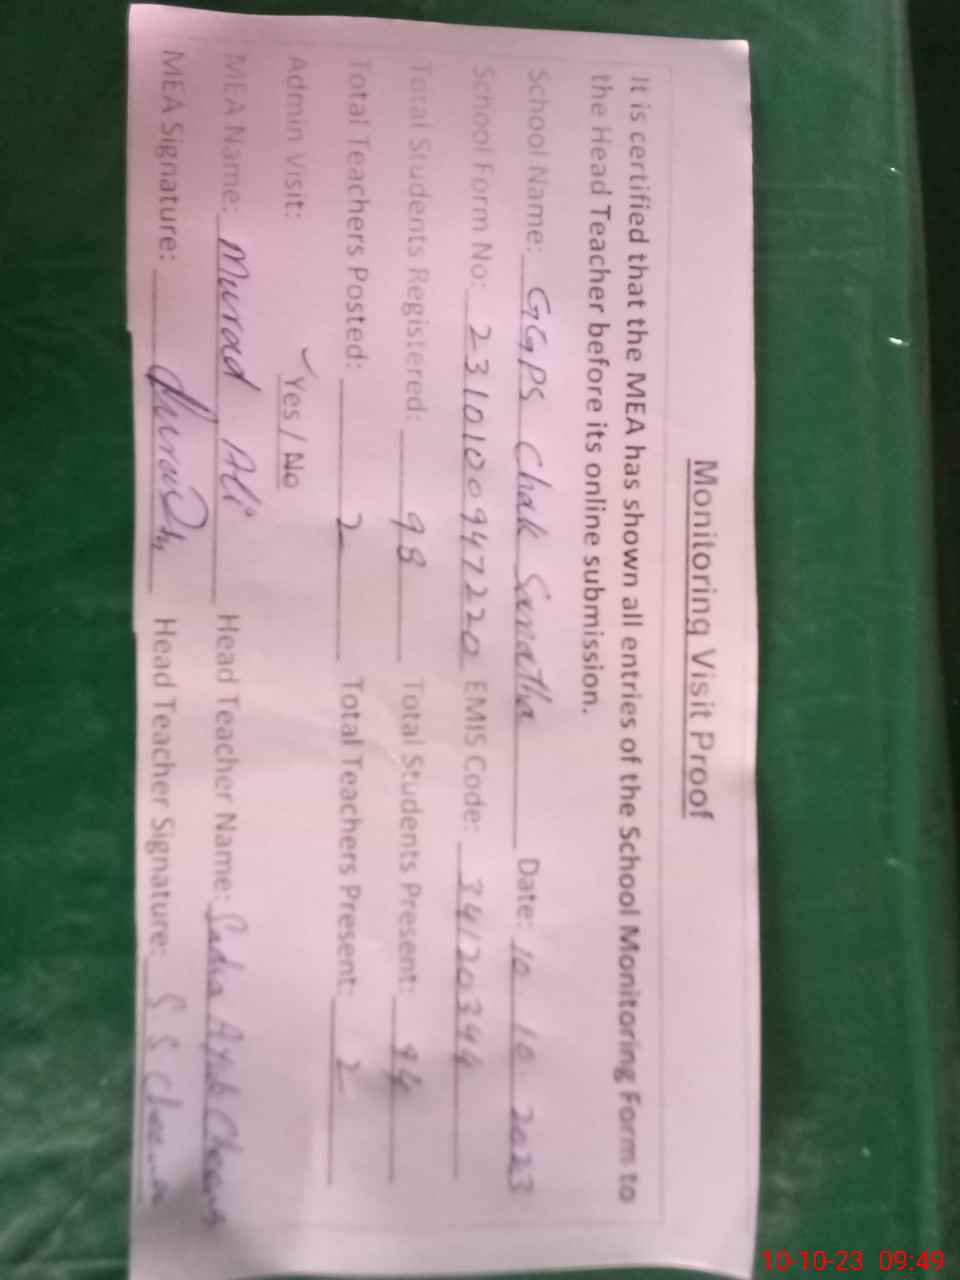 Monitoring Visit Proof
It is certified that the MEA has shown all entries of the School Monitoring Form to
the Head Teacher before its online submission.
School Name: GGPS Chak Sanatha Date: 10 10 2023
School Form No: 2310100947220 EMIS Code: 34120344
Total Students Registered: 98 Total Students Present: 94
Total Teachers Posted: 2 Total Teachers Present: 2
Admin Visit: ✓ Yes / No
MEA Name: Murad Ali Head Teacher Name: Sadia
MEA Signature: Head Teacher Signature:
10-10-23 09:49